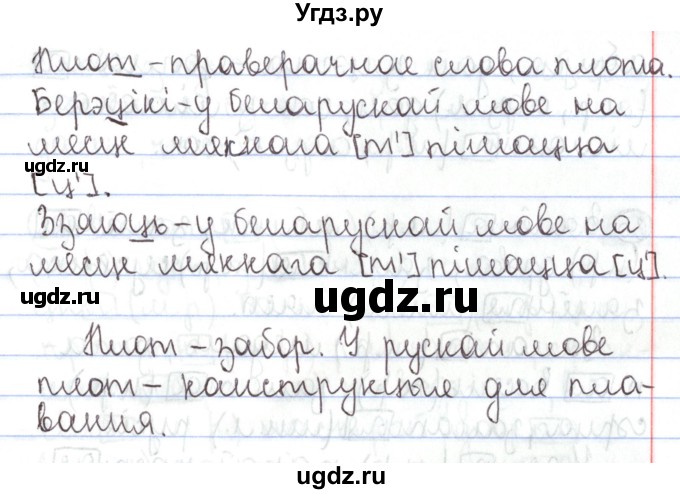 Угдз.ру
Плот – праверачнае слова плота.
Берэцікі – у беларускай мове на
месце мяккага [т'] пішацца
ugdz.ru
[ц'].
Ззяюць – у беларускай мове на
месце мяккага [т'] пішацца [ц'].
ugdz.ru ugdz.ru
Плот – забор. У рускай мове
плот – канструкцыя для пла-
вання.
ugdz.ru
ugdz.ru